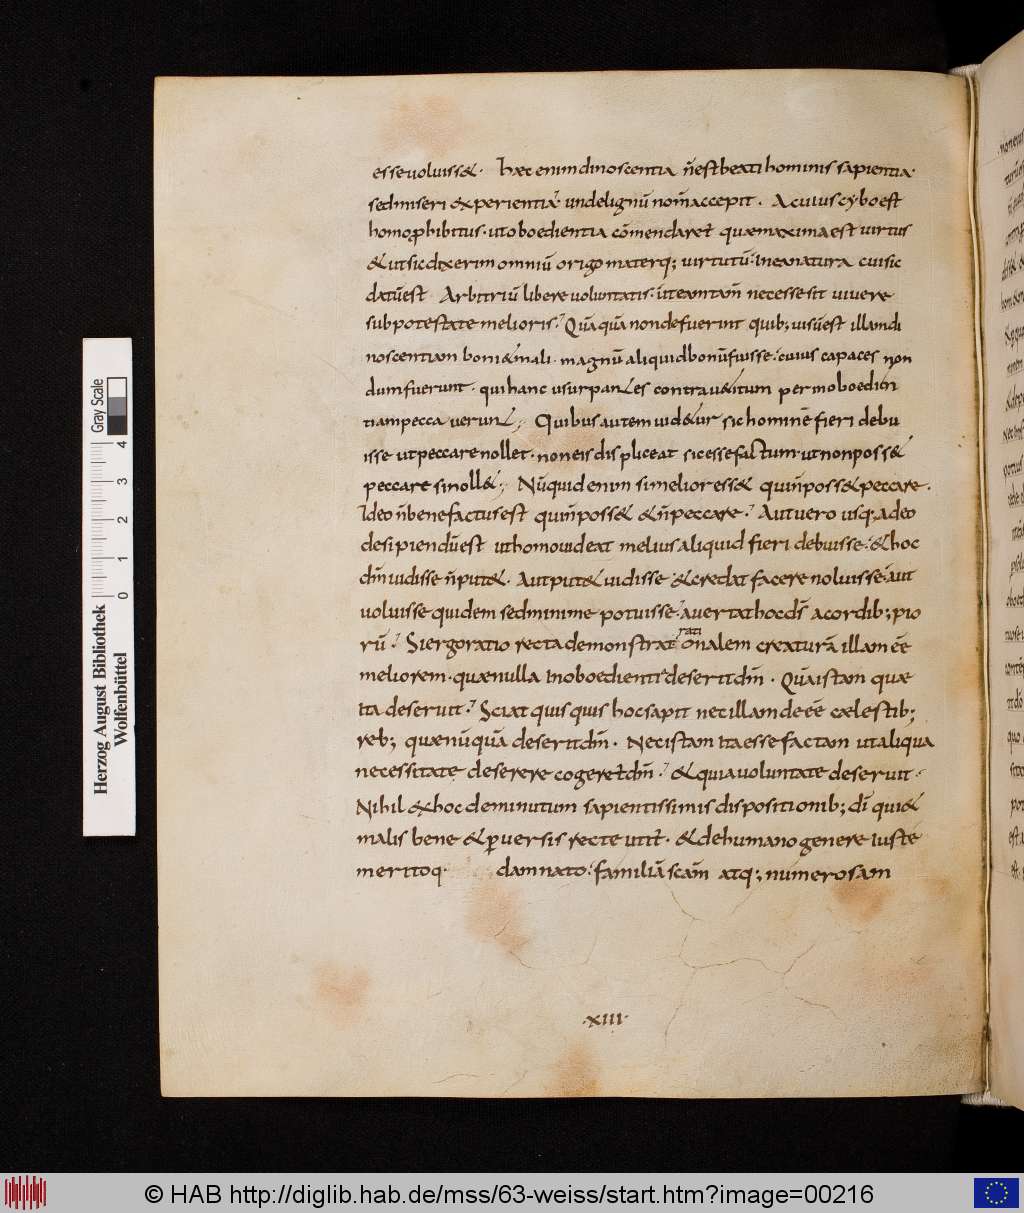 esse uoluiss&. Haec enim dinoscentia n̄ est beati hominis sapientia.
sed miseri experientia unde lignū nom̄ accepit. A cuius cybo est
homo p̱hibitus. ut oboedientia cōmendaret quae maxima est uirtus
& ut sic dixerim omniū origo materq; uirtutū. in ea natura cui sic
datū est Arbitriū liberę uoluntatis. ut eam tam̄ necesse sit uiuere
sub potestate melioris. Quāquā non defuerint quib; uisū est illam di
noscentiam boni & mali. magnū aliquid bonū fuisse. cuius capaces non
dum fuerunt. qui hanc usurpantes contra u&itum per inoboedien
tiam peccauerunt; Quibus autem uid&ur sic hominē fieri debu
isse ut peccare nollet. non eis displiceat sic esse factum. ut non poss&
peccare si noll&; Nūquid enim si melior ess& qui n̄ poss& peccare.
Ideo n̄ bene factus est qui n̄ poss& & n̄ peccare. Aut uero usq; adeo
desipiendū est ut homo uideat melius aliquid fieri debuisse. & hoc
dm̄ uidisse n̄ put&. Aut put& uidisse & credat facere noluisse. aut
uoluisse quidem sed minime potuisse. auertat hoc ds̄ a cordib; pio
rū. Si ergo ratio recta demonstrat rationalem creaturā illam ēē
meliorem. quae nulla inoboedientia deserit dm̄. Quā istam quae
ita deseruit. Sciat quisquis hoc sapit nec illam deēē caelestib;
reb; quae nūquā deserit dm̄. Nec istam ita esse factam ut aliqua
necessitate deserere coger&ur dm̄. & quia uoluntate deseruit.
Nihil ex hoc deminutum sapientissimis dispositionib; dī qui &
malis bene & puersis recte utit̄. & de humano genere iuste
meritoq. damnato. familiā scām atq; numerosam
.XIII.
Herzog August Bibliothek
Wolfenbüttel
0 1 2 3 4
Gray Scale
© HAB http://diglib.hab.de/mss/63-weiss/start.htm?image=00216